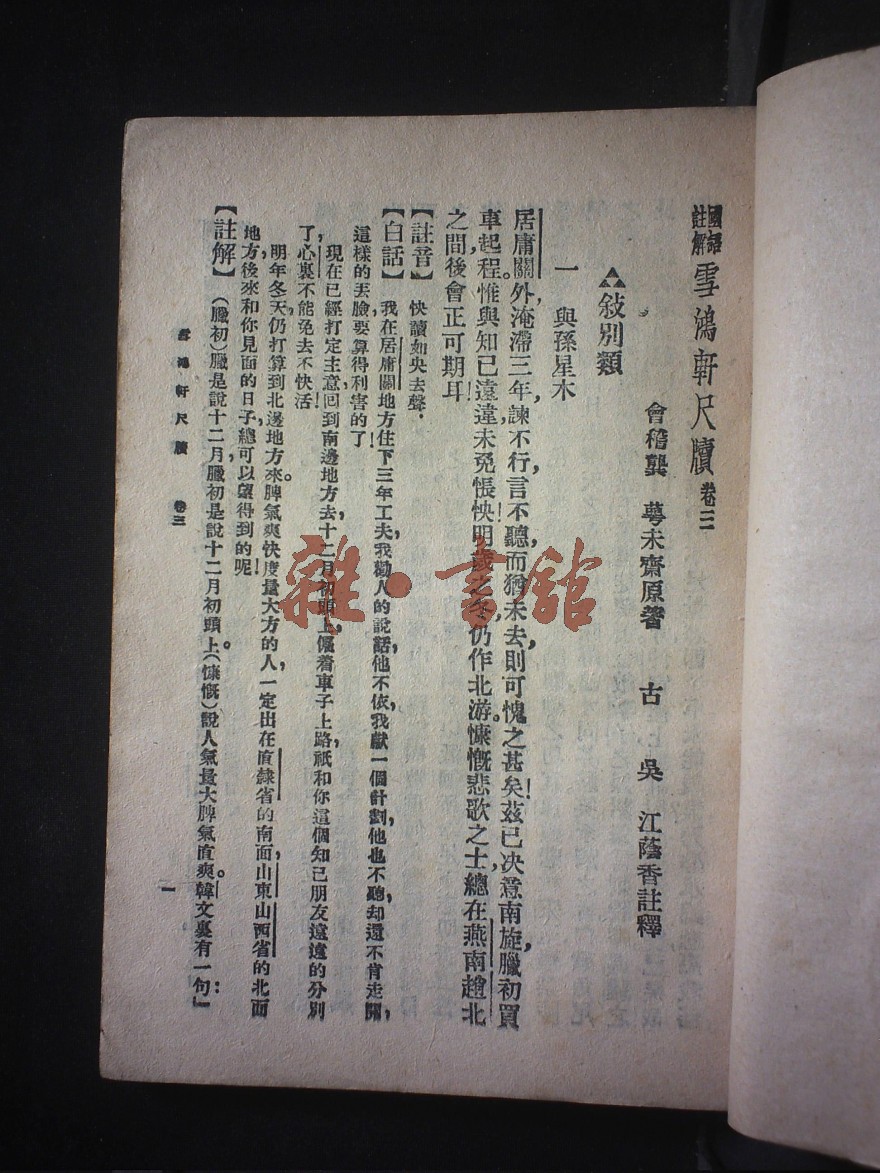 國語註解 雪鴻軒尺牘 卷三
會稽龔 萼未齋原著 古 吳 江蔭香註釋
▲敍別類
一 與孫星木
居庸關外，淹滯三年，諫不行，言不聽，而猶未去，則可愧之甚矣！茲已決意南旋，臘初買
車起程。惟與知己遠違，未免悵怏！明歲之冬，仍作北游。慷慨悲歌之士，總在燕南趙北
之間，後會正可期耳！
【註音】 怏讀如央去聲．
【白話】 我在居庸關地方住下三年工夫，我勸人的說話，他不依，我獻一個計劃，他也不聽，却還不肯走開，
這樣的丟臉，要算得利害的了！
現在已經打定主意，回到南邊地方去，十二月初頭上，僱着車子上路，祇和你這個知己朋友遠遠的分別
了，心裏不能免去不快活！
明年冬天，仍打算到北邊地方來。脾氣爽快度量大方的人，一定出在直隸省的南面，山東山西省的北面
地方，後來和你見面的日子，總可以望得到的呢！
【註解】 （臘初）臘是說十二月，臘初是說十二月初頭上。（慷慨）說人氣量大，脾氣直爽。韓文裏有一句：「
雪鴻軒尺牘 卷三
一
雜·書館